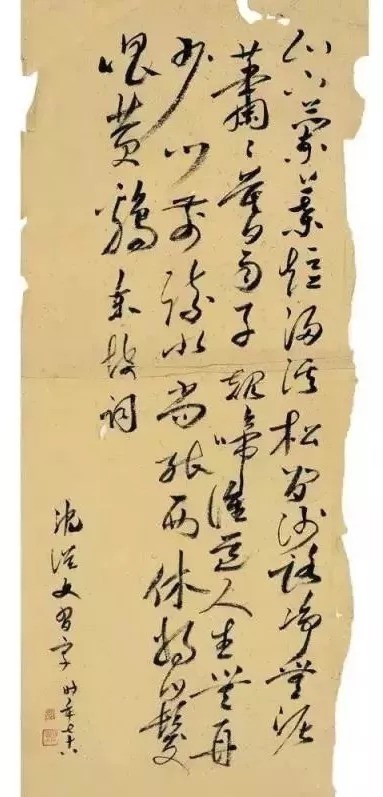 山下蘭短浸溪松間沙路净無泥
蕭〻暮雨子規啼誰道人生無再
少門前流水尚能西休將白髮
唱黄鷄東坡詞
沈從文習字时年七十